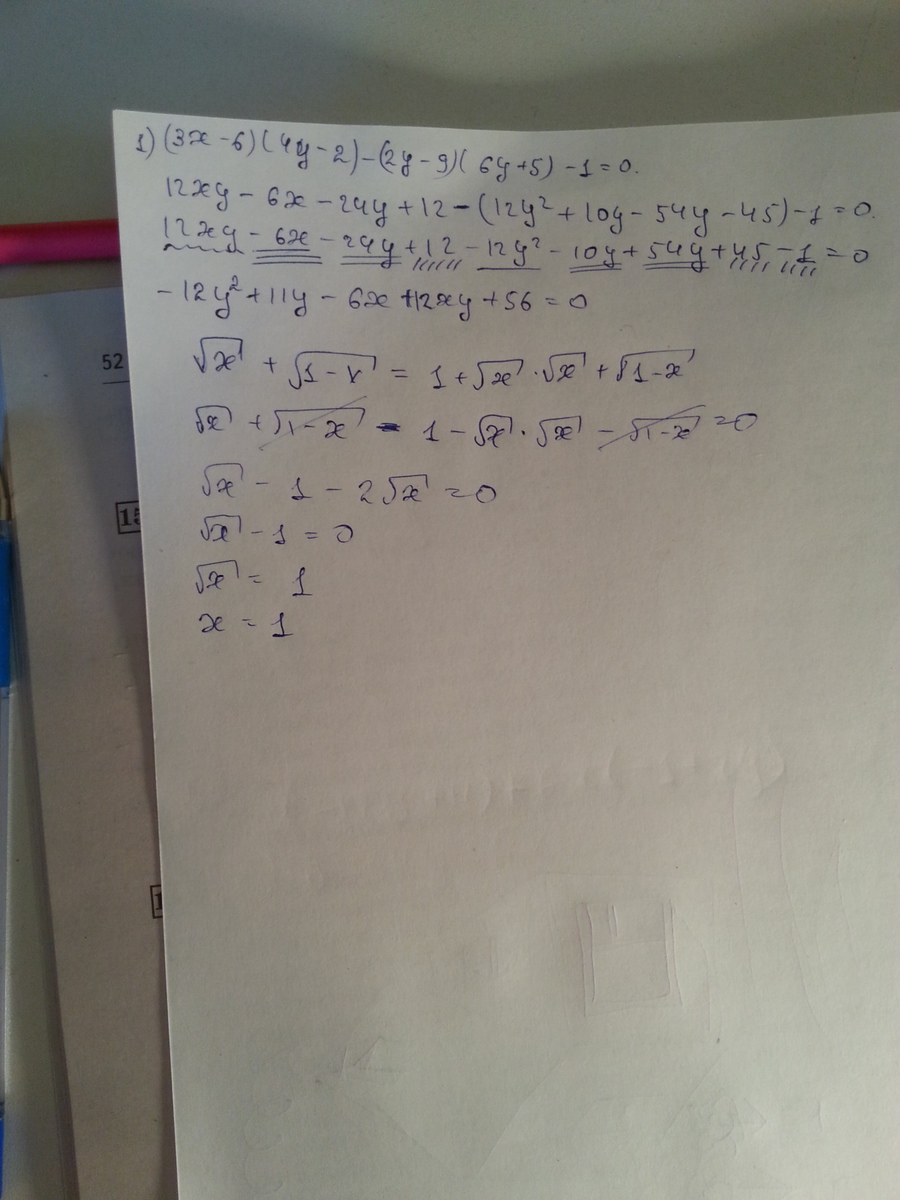 1) (3x-6)(4y-2)-(2y-9)(6y+5)-1=0.
12xy-6x-24y+12-(12y²+10y-54y-45)-1=0.
12xy-6x-24y+12-12y²-10y+54y+45-1=0
-12y²+11y-6x+12xy+56=0
√x + √1-x = 1+√x·√x+√1-x
√x + √1-x - 1-√x·√x-√1-x=0
√x - 1 - 2√x =0
√x -1 = 0
√x = 1
x = 1
52